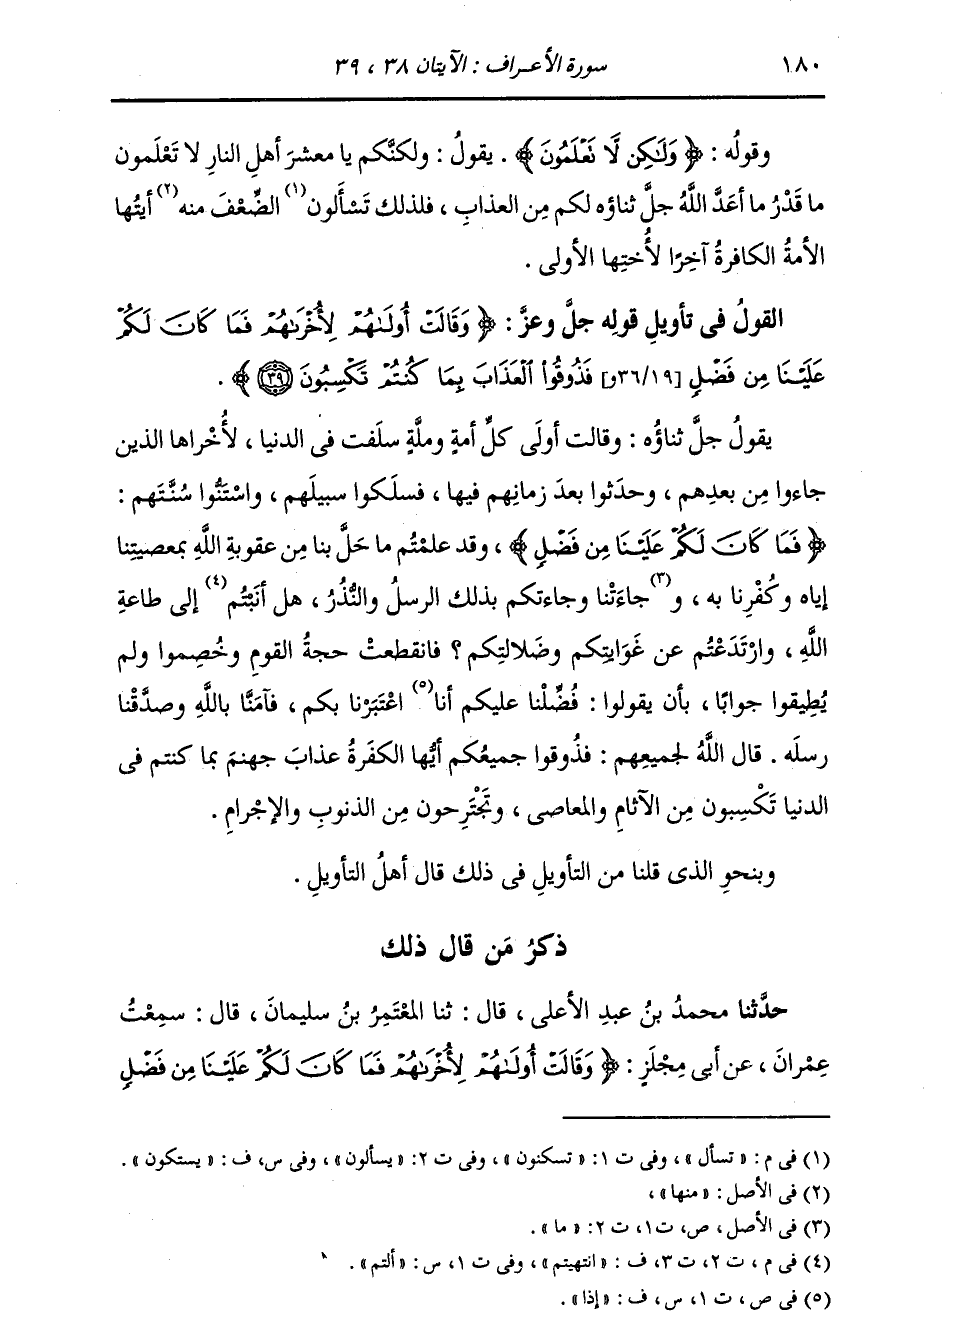 ١٨٠ سورة الأعراف : الآيتان ٣٨ ، ٣٩
وقولُه : ﴿ وَلَٰكِن لَّا نَعْلَمُونَ ﴾ . يقولُ : ولكنَّكم يا معشرَ أهلِ النارِ لا تَعْلَمون
ما قَدْرُ ما أعَدَّ اللَّهُ جلَّ ثناؤه لكم مِن العذابِ ، فلذلك تَسْأَلون(١) الضِّعْفَ منه(٢) أيتُها
الأمةُ الكافرةُ آخِرًا لأُختِها الأولى .
القولُ فى تأويلِ قولِه جلَّ وعزَّ : ﴿ وَقَالَتْ أُولَىٰهُمْ لِأُخْرَىٰهُمْ فَمَا كَانَ لَكُمْ
عَلَيْنَا مِن فَضْلٍ [٣٦/١٩و] فَذُوقُوا۟ ٱلْعَذَابَ بِمَا كُنتُمْ تَكْسِبُونَ ﴿٣٩﴾ ﴾ .
يقولُ جلَّ ثناؤُه : وقالت أولَى كلِّ أمةٍ وملَّةٍ سلَفت فى الدنيا ، لأُخْراها الذين
جاءوا مِن بعدِهم ، وحدَثوا بعدَ زمانِهم فيها ، فسلَكوا سبيلَهم ، واسْتَنُّوا سُنَّتَهم :
﴿ فَمَا كَانَ لَكُمْ عَلَيْنَا مِن فَضْلٍ ﴾ ، وقد علمْتُم ما حَلَّ بنا مِن عقوبةِ اللَّهِ بمعصيتِنا
إياه وكُفْرِنا به ، و(٣)جاءَتْنا وجاءتكم بذلك الرسلُ والنُّذُرُ ، هل أنَبْتُم(٤) إلى طاعةِ
اللَّهِ ، وارْتَدَعْتُم عن غَوَايتِكم وضَلالتِكم ؟ فانقطعتْ حجةُ القومِ وخُصِموا ولم
يُطِيقوا جوابًا ، بأن يقولوا : فُضِّلْنا عليكم أنا(٥) اعْتَبَرْنا بكم ، فآمَنَّا باللَّهِ وصدَّقْنا
رسلَه . قال اللَّهُ لجميعِهم : فذُوقوا جميعُكم أيُّها الكفَرةُ عذابَ جهنمَ بما كنتم فى
الدنيا تَكْسِبون مِن الآثامِ والمعاصى ، وتَجْتَرِحون مِن الذنوبِ والإجْرامِ .
وبنحوِ الذى قلنا من التأويلِ فى ذلك قال أهلُ التأويلِ .
ذكرُ مَن قال ذلك
حدَّثنا محمدُ بنُ عبدِ الأعلى ، قال : ثنا المُعْتَمِرُ بنُ سليمانَ ، قال : سمِعْتُ
عِمْرانَ ، عن أبى مِجْلَزٍ : ﴿ وَقَالَتْ أُولَىٰهُمْ لِأُخْرَىٰهُمْ فَمَا كَانَ لَكُمْ عَلَيْنَا مِن فَضْلٍ
(١) فى م : « تسأل » ، وفى ت ١ : « تسكنون » ، وفى ت ٢: « يسألون » ، وفى س، ف : « يستكون » .
(٢) فى الأصل : « منها » ،
(٣) فى الأصل ، ص، ت١، ت ٢: « ما » .
(٤) فى م ، ت ٢، ت ٣، ف : « انتهيتم » ، وفى ت ١، س : « ألتم » .
(٥) فى ص ، ت ١، س ، ف : « إذا » .